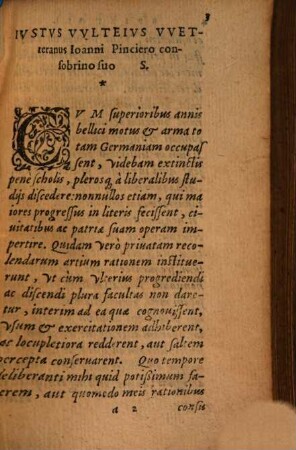 3
IVSTVS VVLTEIVS VVET-
teranus Ioanni Pinciero con
sobrino suo S.
*
CVM superioribus annis
bellici motus & arma to
tam Germaniam occupas
sent, videbam extinctis
pene scholis, plerosq́ à liberalibus stu-
dijs discedere: nonnullos etiam, qui ma
iores progressus in literis fecissent, ci-
uitatibus ac patriæ suam operam im-
pertire. Quidam verò priuatam reco-
lendarum artium rationem institue-
runt, vt cùm vlterius progrediendi
ac discendi plura facultas non dare
tur, interim ad ea quæ cognouissent,
vsum & exercitationem adhiberent,
ac locupletiora redderent, aut saltem
percepta conseruarent. Quo tempore
deliberanti mihi quid potissimum fa-
cerem, aut quomodo meis rationibus
a 2 consu